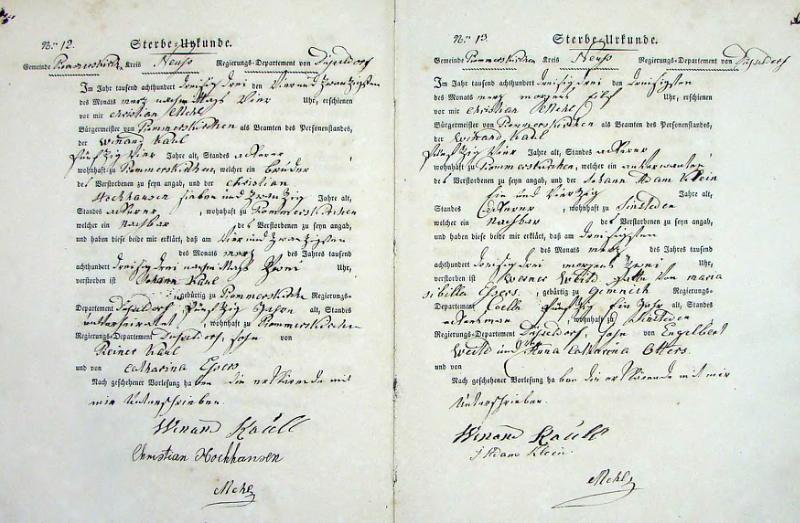 No. 12. Sterbe-Urkunde.
Gemeinde Rommerskirchen Kreis Neuß Regierungs-Departement von Düsseldorf
Im Jahr tausend achthundert dreisig drei den Vier und zwanzigsten
des Monats merz nachmittags Vier Uhr, erschienen
vor mir christian Mehl
Bürgermeister von Rommerskirchen als Beamten des Personenstandes,
der Winand Kaul
fünfzig vier Jahre alt, Standes ackerer
wohnhaft zu Rommerskirchen, welcher ein bruder
des Verstorbenen zu seyn angab, und der christian
Hochhausen sieben und zwanzig Jahre alt,
Standes ackerer, wohnhaft zu Rommerskirchen
welcher ein Nachbar des Verstorbenen zu seyn angab,
und haben diese beide mir erklärt, daß am Vier und zwanzigsten
des Monats merz des Jahres tausend
achthundert dreisig drei nachmittags zwei Uhr,
verstorben ist Johann Kaul
gebürtig zu Rommerskirchen Regierungs-
Departement Düsseldorf, fünfzig alt, Standes
wohnhaft zu Rommerskirchen
Regierungs-Departement Düsseldorf, sohn von
Reiner Kaul
und von catharina Esser
Nach geschehener Vorlesung haben die erklärende mit
mir Unterschrieben.
Winand Kaull
Christian Hochhausen
Mehl
No. 13. Sterbe-Urkunde.
Gemeinde Rommerskirchen Kreis Neuß Regierungs-Departement von Düsseldorf
Im Jahr tausend achthundert dreisig drei den dreisigsten
des Monats merz morgens Uhr, erschienen
vor mir christian Mehl
Bürgermeister von Rommerskirchen als Beamten des Personenstandes,
der Winand Kaul
fünfzig vier Jahre alt, Standes ackerer
wohnhaft zu Rommerskirchen, welcher ein anverwanter
des Verstorbenen zu seyn angab, und der Johann Adam Klein
Ein und vierzig Jahre alt,
Standes Ackerer, wohnhaft zu Sinsteden
welcher ein Nachbar des Verstorbenen zu seyn angab,
und haben diese beide mir erklärt, daß am dreisigsten
des Monats merz des Jahres tausend
achthundert dreisig drei morgens zwei Uhr,
verstorben ist Werner von maria
sibilla Esser, gebürtig zu Regierungs-
Departement Coelln fünfzig Ein Jahr alt, Standes
ackersman, wohnhaft zu Sinsteden
Regierungs-Departement Düsseldorf, sohn von Engelbert
und Anna catharina
und von
Nach geschehener Vorlesung haben die erklärende mit mir
Unterschrieben.
Winand Kaull
J Adam Klein
Mehl